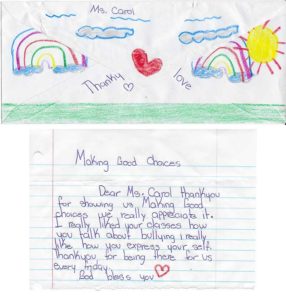 Ms. Carol
Thanky
love
Making Good Choices
Dear Ms. Carol thankyou
for showing us Making Good
choices we really appreciate it.
I really liked your classes how
you talk about bullying i really
like how you express your self.
Thankyou for being there for us
every friday.
God bless you